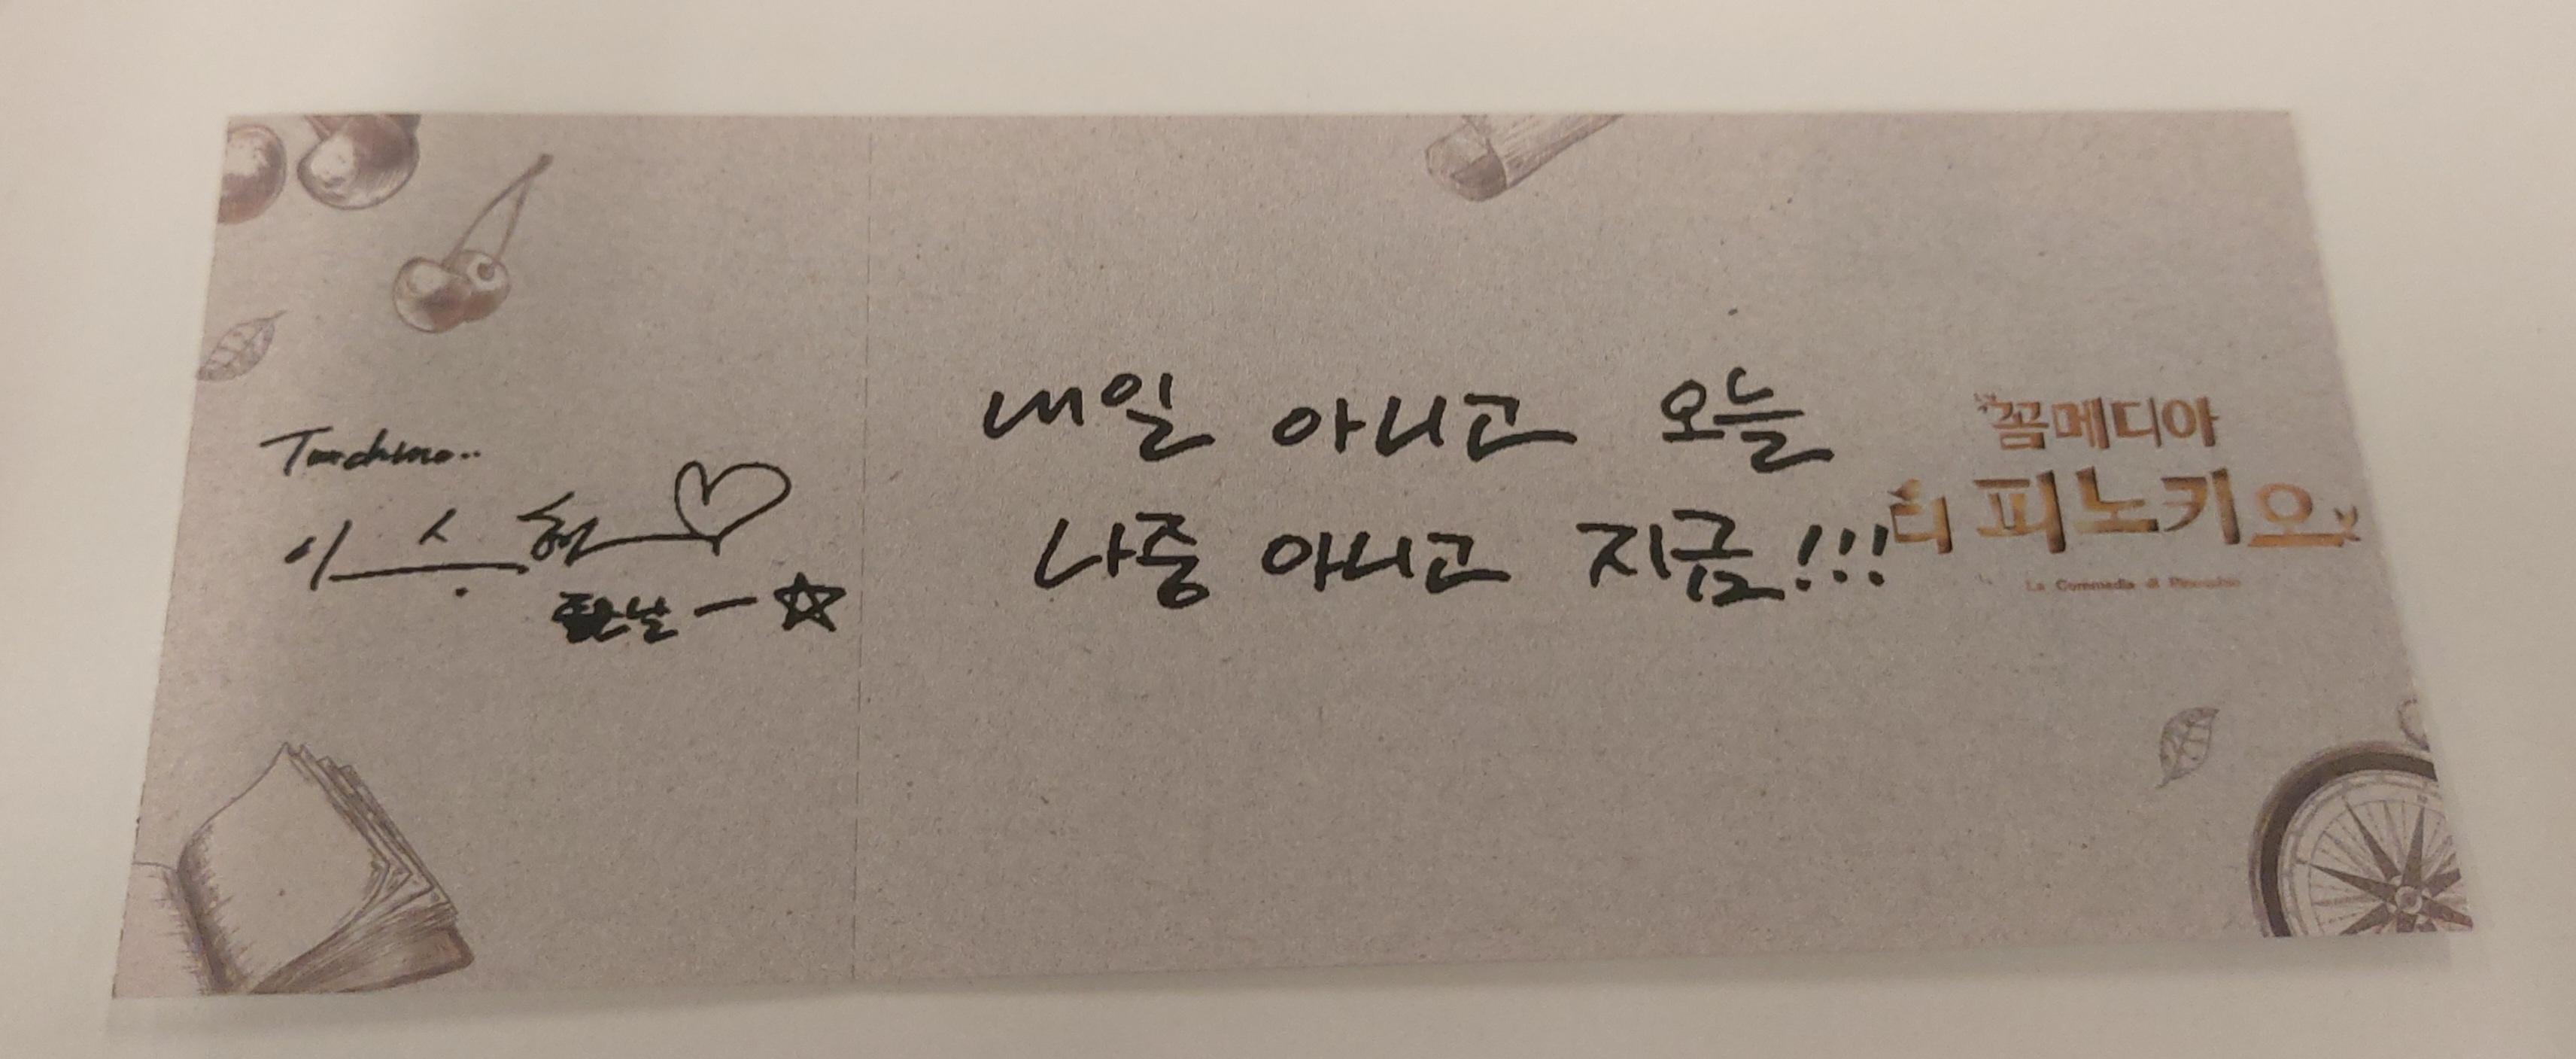 내일 아니고 오늘
나중 아니고 지금!!!
꼼메디아
피노키오
La Commedia di Pinocchio